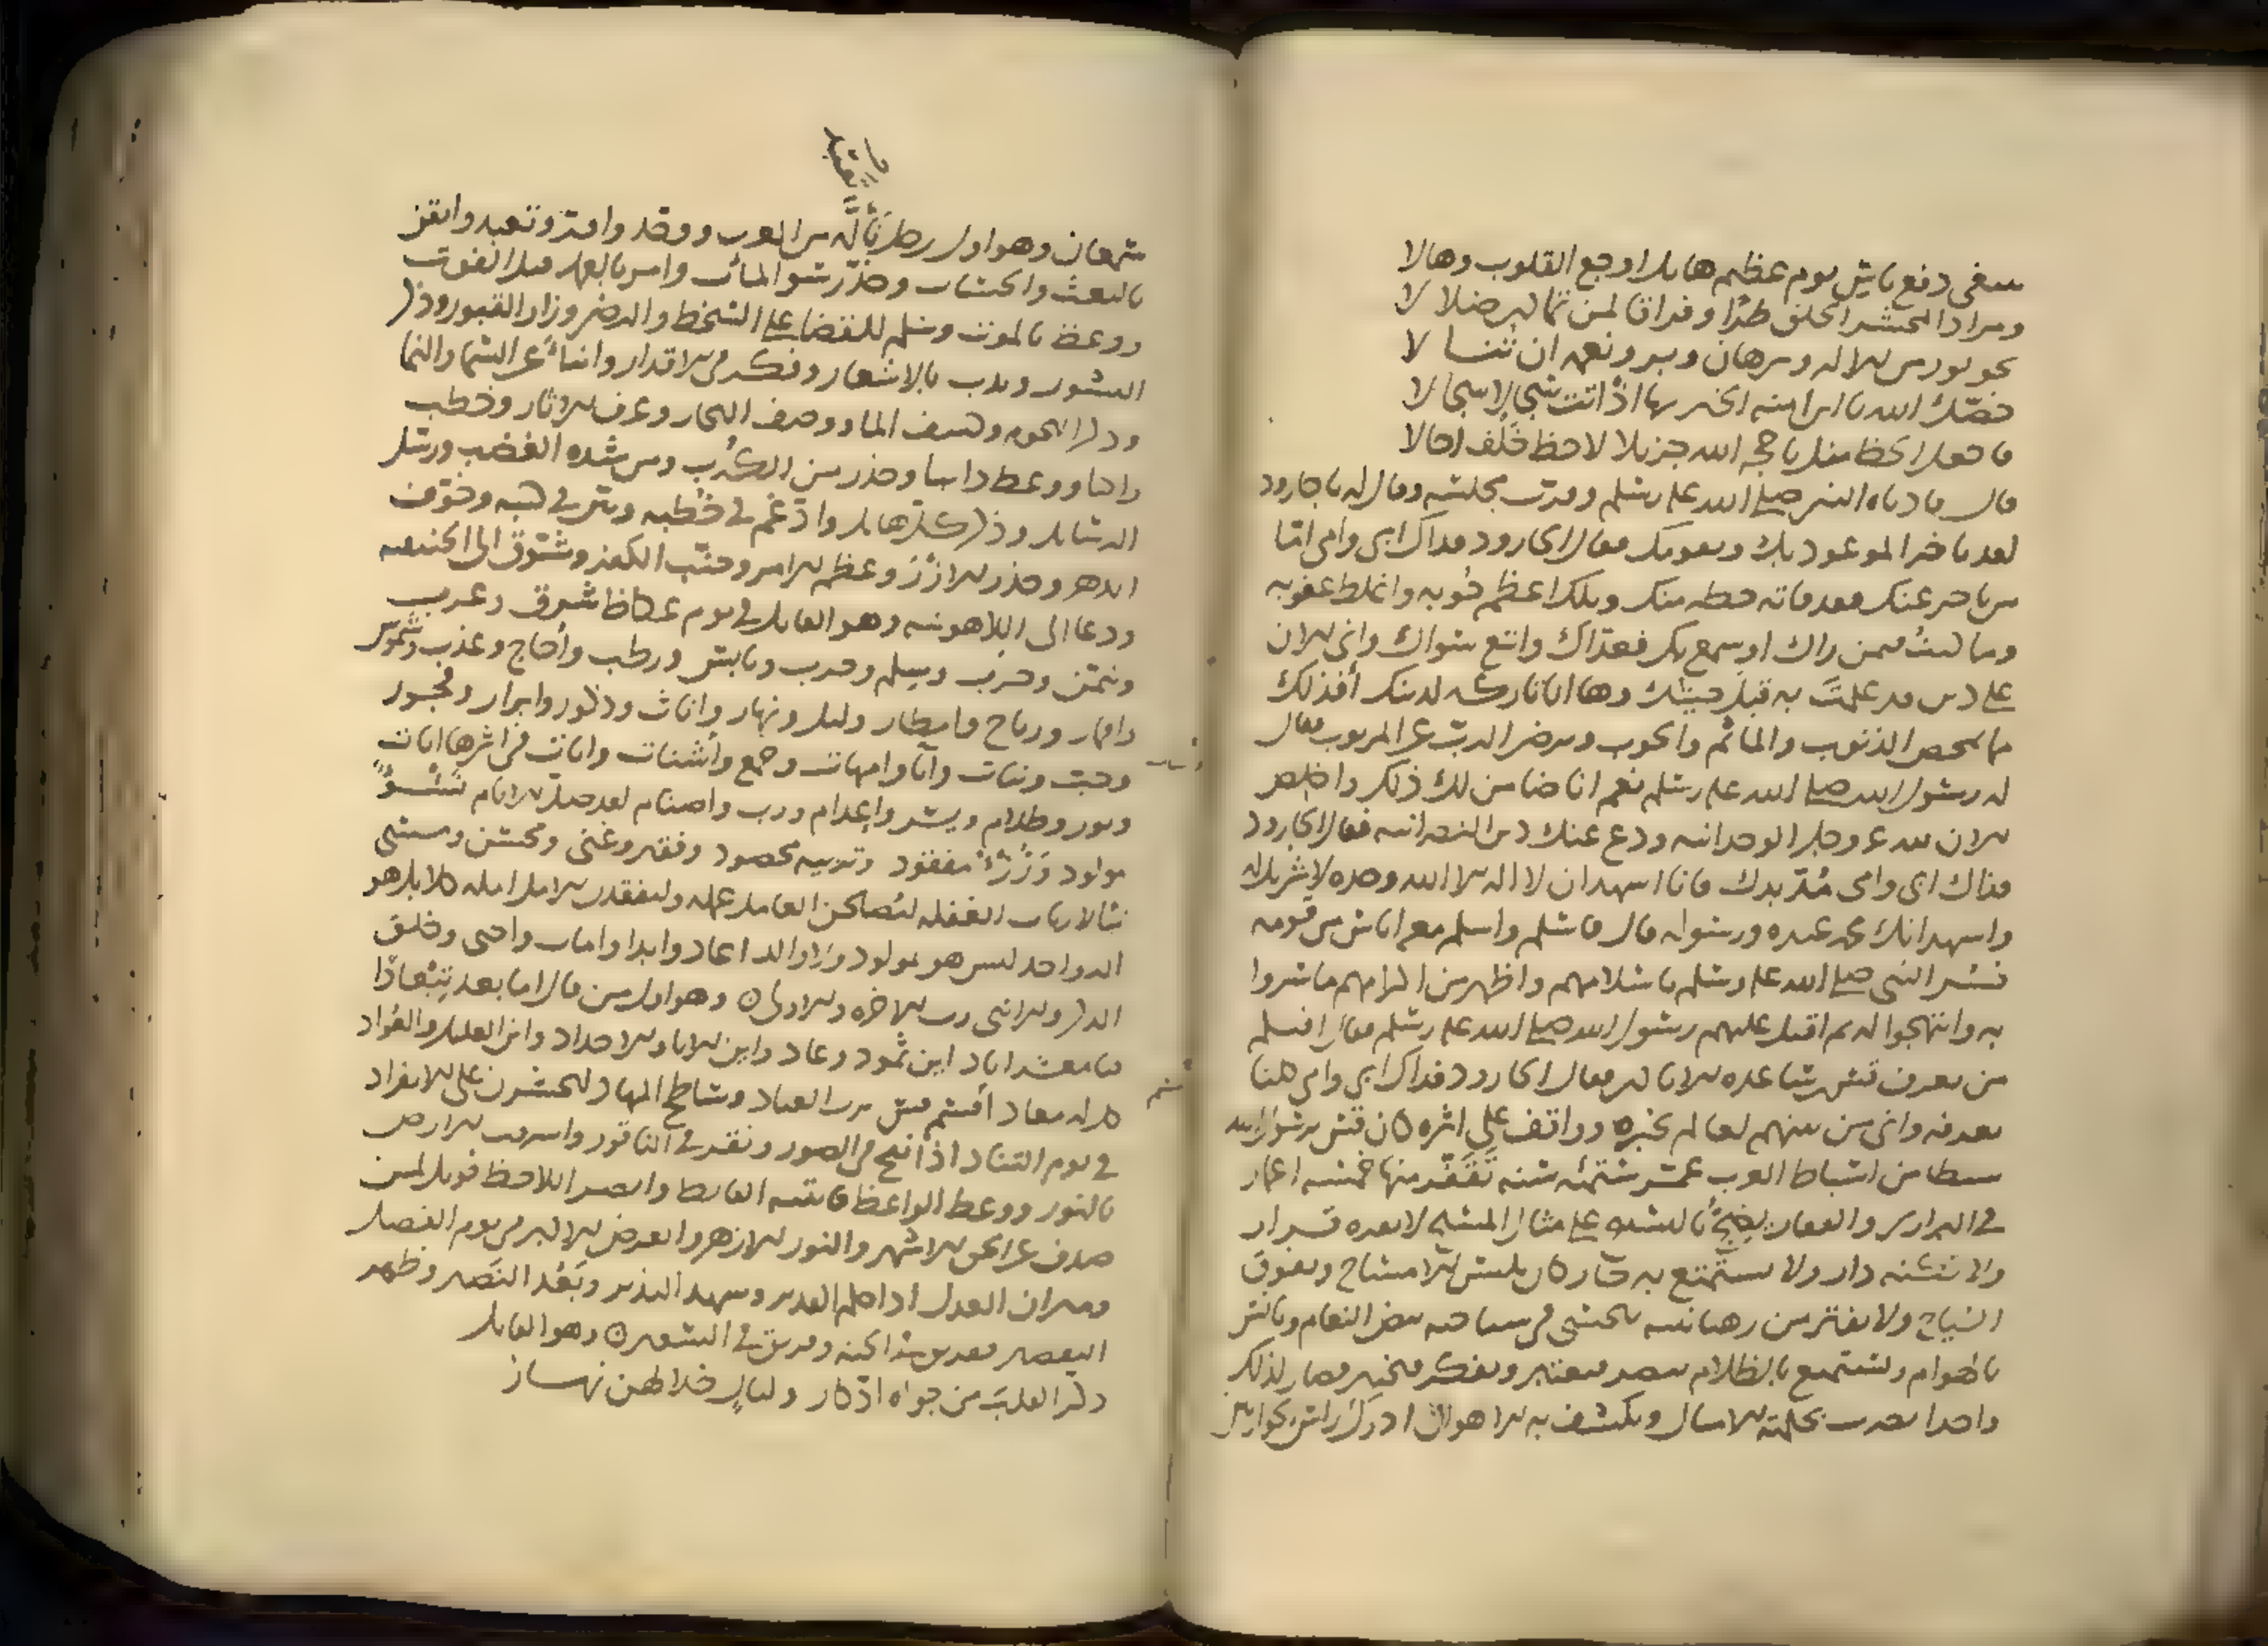 تبتغي دفع باس يوم عظيم هايل اوجع القلوب وهالا
ومرادا لمحشر الخلق طرا وفراقا لمن تمادى ضلالا
نحو نور من الاله وبرهان وبر ونعمه ان تنالا
خصك الله يا ابن امنه الخير بها اذ اتت سجالا سجالا
فاجعل الحظ منك يا حجه الله جزيلا لا حظ خلف احالا
قال فادناه النبي صلى الله عليه وسلم وقرب مجلسه وقال له يا جارود
لقد تاخر الموعود بك وبقومك فقال الجارود فداك ابي وامي اما
من تاخر عنك فقد فاته حظه منك وتلك اعظم حوبه واغلظ عقوبه
وما كنت فيمن راك او سمع بك فعداك واتبع سواك واني الان
على دين قد علمت به قبل جيتك وها انا تاركه لدينك أفذلك
مما يمحص الذنوب والماثم والحوب ويرضي الرب عن المربوب فقال
له رسول الله صلى الله عليه وسلم نعم انا ضامن لك ذلك واخلص
الان لله عز وجل الوحدانيه ودع عنك دين النصرانيه فقال الجارود
فداك ابي وامي مد يدك فانا اشهد ان لا اله الا الله وحده لا شريك له
واشهد انك محمد عبده ورسوله قال فاسلم واسلم معه اناس من قومه
فسر النبي صلى الله عليه وسلم باسلامهم واظهر من اكرامهم ما سروا
به وابتهجوا له ثم اقبل عليهم رسول الله صلى الله عليه وسلم فقال افيكم
من يعرف قس بن ساعده الايادي فقال الجارود فداك ابي وامي كلنا
يعرفه واني من بينهم لعالم بخبره وواقف على اثره كان قس يرسول الله
سبطا من اسباط العرب عمر ستمئه سنه تقفر منها خمسه اعمار
في البراري والقفار يضج بالتسبيح على مثال المسيح لا يقره قرار
ولا تكنه دار ولا يستمتع به جار كان يلبس الامساح ويفوق
السياح ولا يفتر من رهبانيته يتحسى في سياحته بيض النعام ويانس
بالهوام ويستمتع بالظلام يبصر فيعتبر ويفكر فيختبر فصار لذلك
واحدا تضرب بحكمته الامثال ويكشف به الاهوال ادرك راس الحواريين
سمعان وهو اول رجل تأله من العرب ووحد واقر وتعبد وايقن
بالبعث والحساب وحذر سو الماب وامر بالعمل قبل الفوت
ووعظ بالموت وسلم للقضا على السخط والرضى وزار القبور وذكر
النشور وندب بالاشعار وفكر في الاقدار وانبأ عن السما والنما
وذكر النجوم وكشف الما ووصف البحار وعرف الاثار وخطب
راكبا ووعظ دايبا وحذر من الكرب ومن شده الغضب ورسل
الرسايل وذكر كل هايل وارغم في خطبه وبين في كتبه وخوف
الدهر وحذر الازر وعظم الامر وجنب الكفر وشوق الى الحنيفيه
ودعا الى اللاهوتيه وهو القايل في يوم عكاظ شرق وغرب
ويتم وحزب وسلم وحرب ويابس ورطب وأجاج وعذب وشموس
واقمار ورياح وامطار وليل ونهار واناث وذكور وابرار وفجور
وحب ونبات وآبا وامهات وجمع وأشتات وايات في اثرها ايات
ونور وظلام ويسر واعدام ورب واصنام لقد ضل الانام نشو
مولود ووأد مفقود وتربيه محصود وفقير وغني ومحسن ومسي
تبا لارباب الغفله ليصلحن العامل عمله وليفقدن الامل امله كلا بل هو
اله واحد ليس هو بمولود ولا والد اعاد وابدا وامات واحيى وخلق
الذكر والانثى رب الاخره والاولى ه وهو اول من قال اما بعد
فيا معشر اياد اين ثمود وعاد واين الابا والاجداد واين العليل والعواد
كل له معاد أقسم قس برب العباد وساطح المهاد لتحشرن على الانفراد
في يوم التناد اذا نفخ في الصور ونقر في الناقور واشرقت الارض
بالنور ووعظ الواعظ فانتبه القانط وابصر اللاحظ فويل لمن
صدف عن الحق الاشهر والنور الازهر والعرض الاكبر في يوم الفصل
وميزان العدل اذا حكم القدير وشهد النذير وبعد النصير وظهر
التقصير ففريق في الجنه وفريق في السعير ه وهو القايل
ذكر القلب من جواه ادكار وليال خلالهن نهار